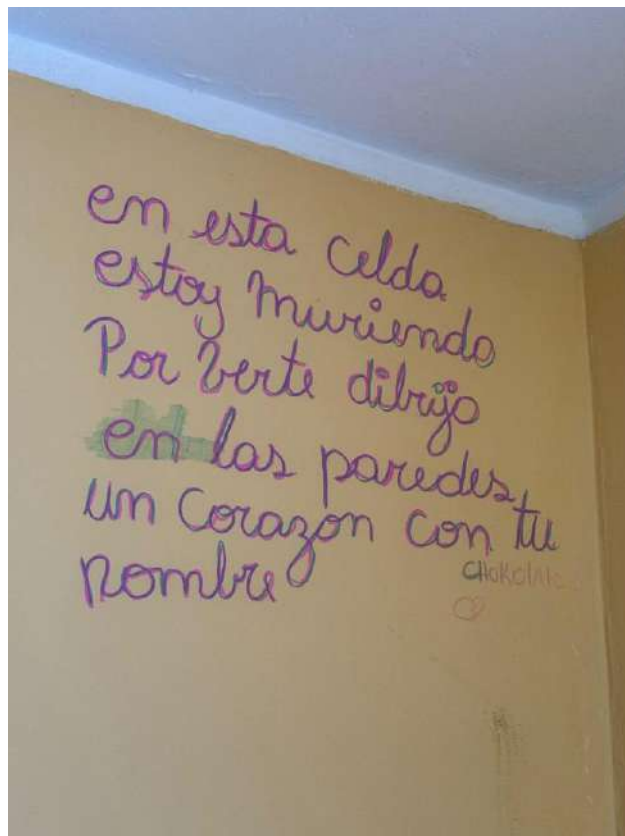 en esta celda
estoy muriendo
Por verte dibujo
en las paredes
un corazon con tu
nombre